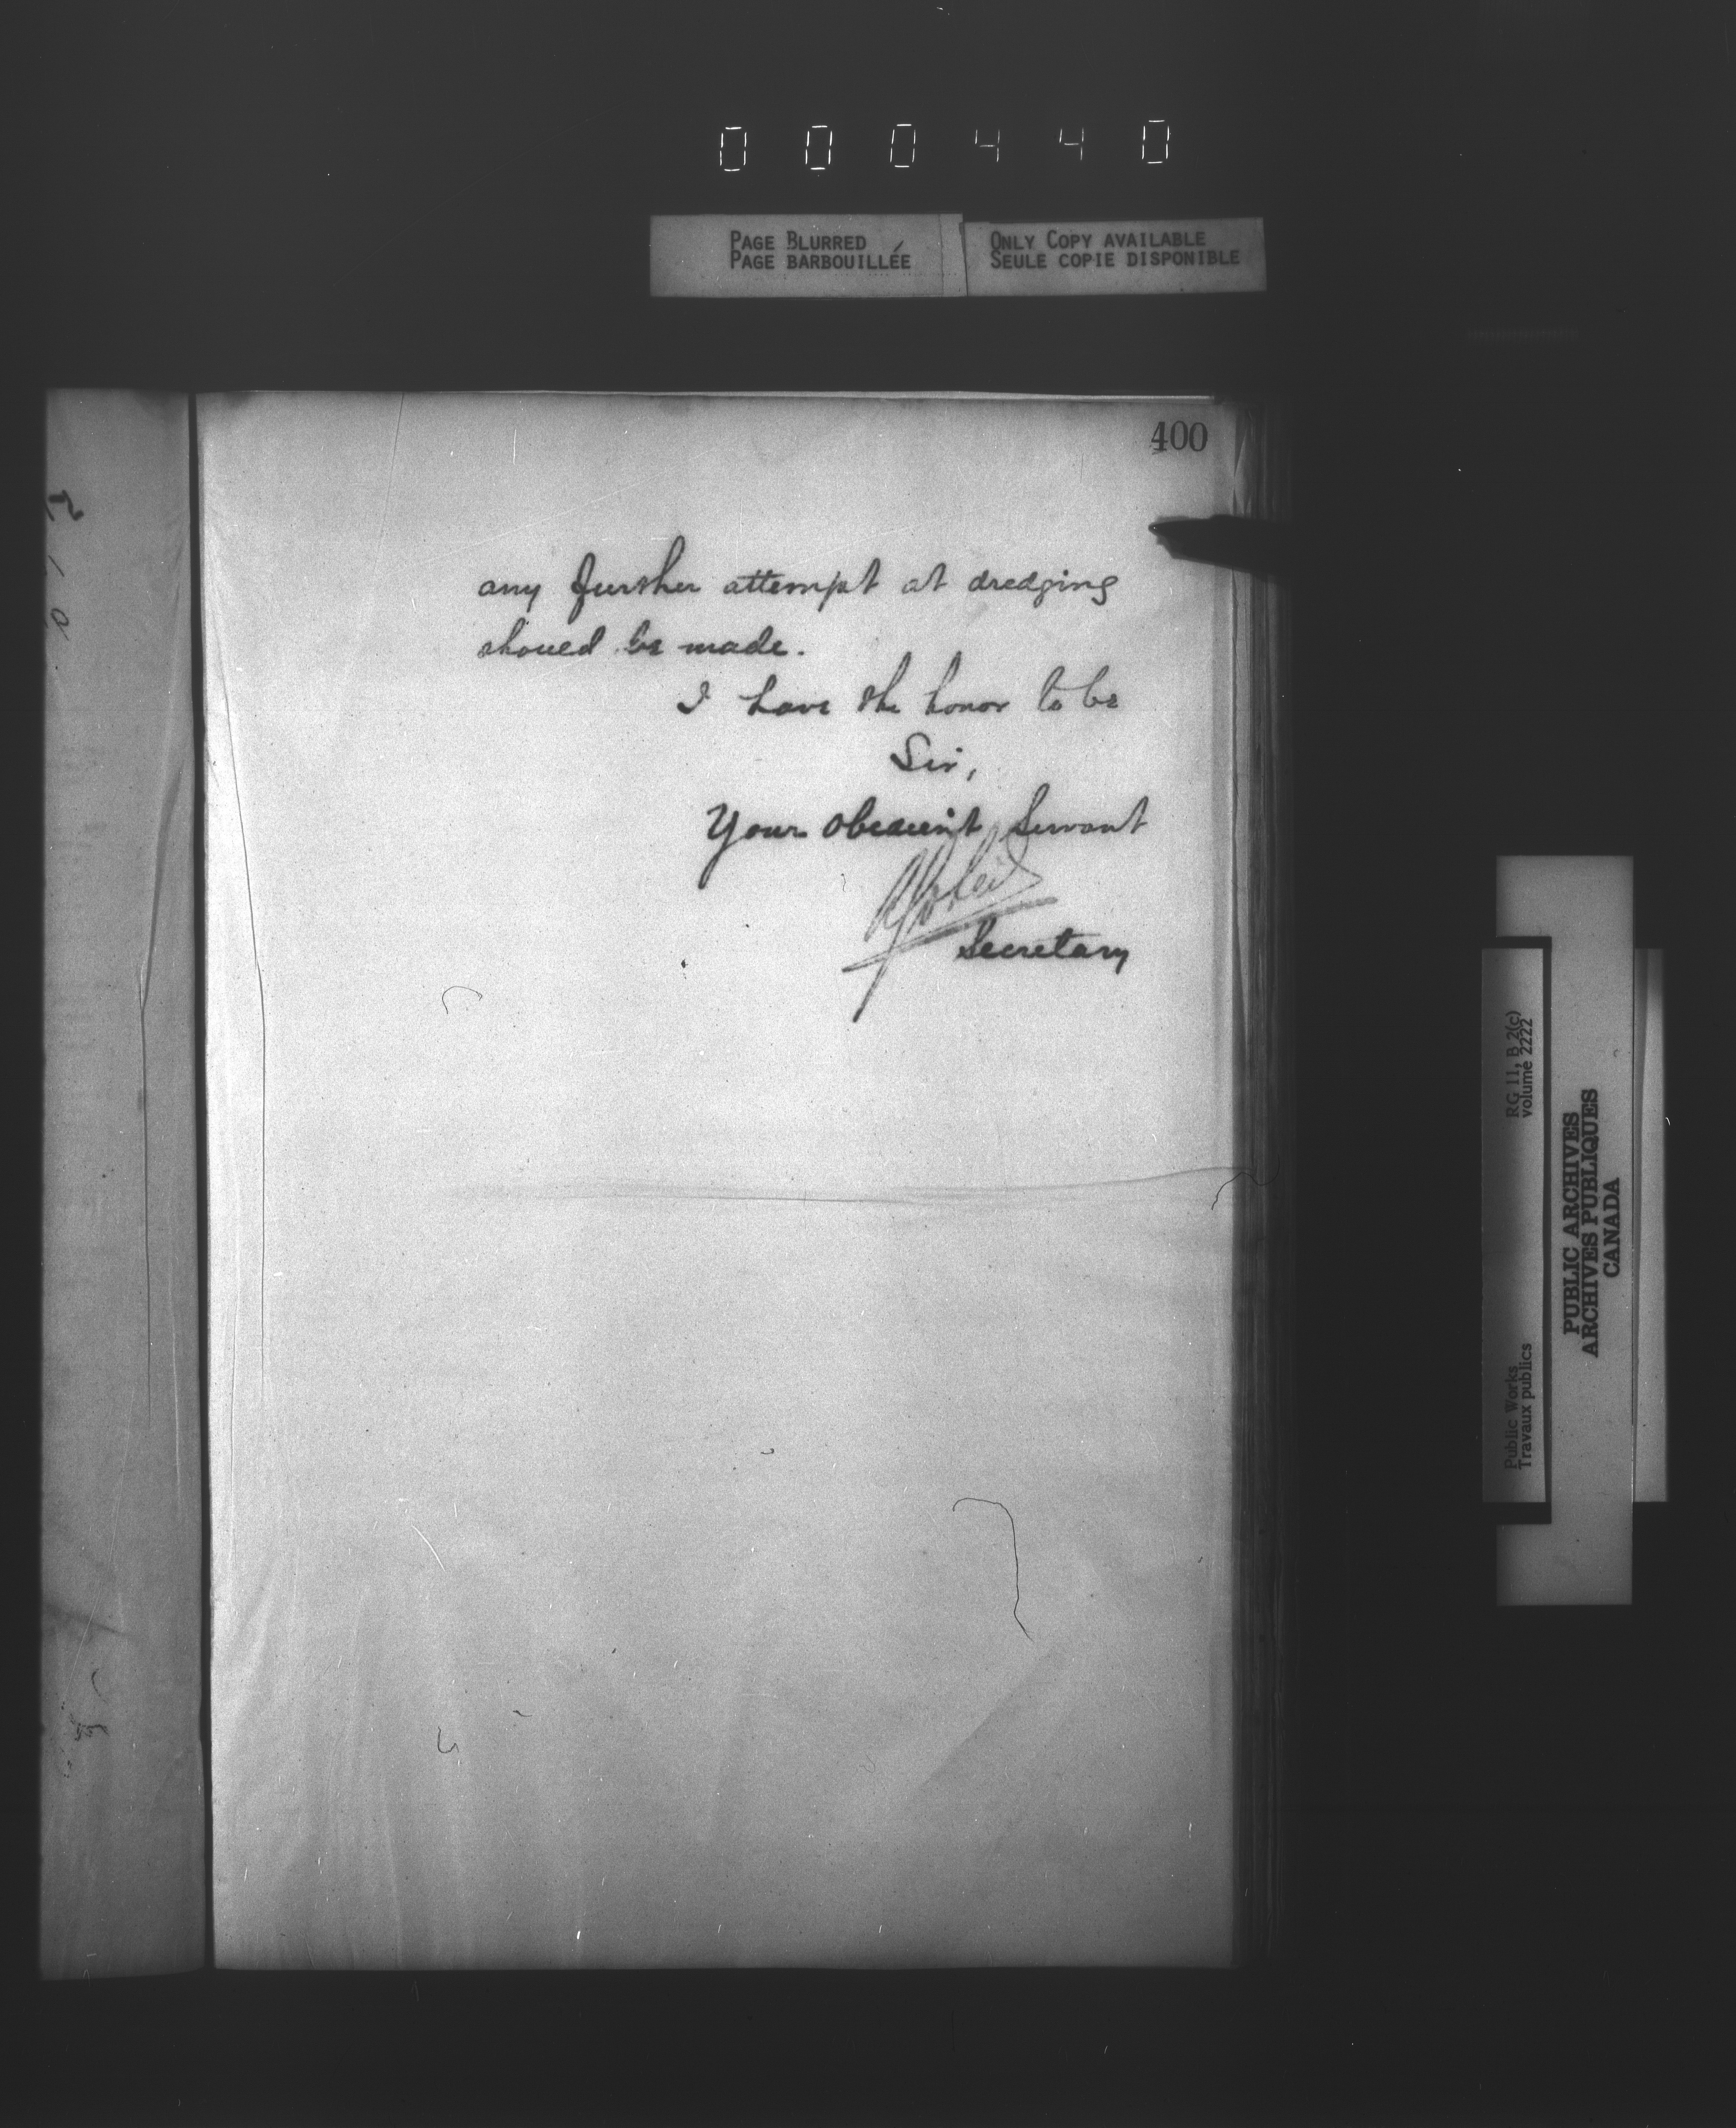 000440
PAGE BLURRED
PAGE BARBOUILLÉE
ONLY COPY AVAILABLE
SEULE COPIE DISPONIBLE
400
any further attempt at dredging
should be made.
I have the honor to be
Sir,
Your obedient Servant
Secretary
RG 11, B 2(c)
volume 2222
Public Works
Travaux publics
PUBLIC ARCHIVES
ARCHIVES PUBLIQUES
CANADA